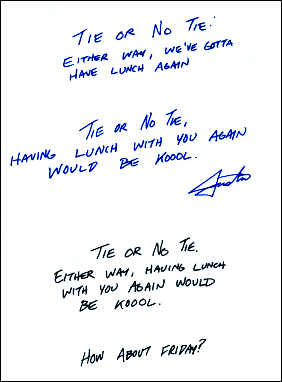 TIE OR NO TIE:
EITHER WAY, WE'VE GOTTA
HAVE LUNCH AGAIN
TIE OR NO TIE,
HAVING LUNCH WITH YOU AGAIN
WOULD BE KOOOL.
TIE OR NO TIE.
EITHER WAY, HAVING LUNCH
WITH YOU AGAIN WOULD
BE KOOOL.
HOW ABOUT FRIDAY?